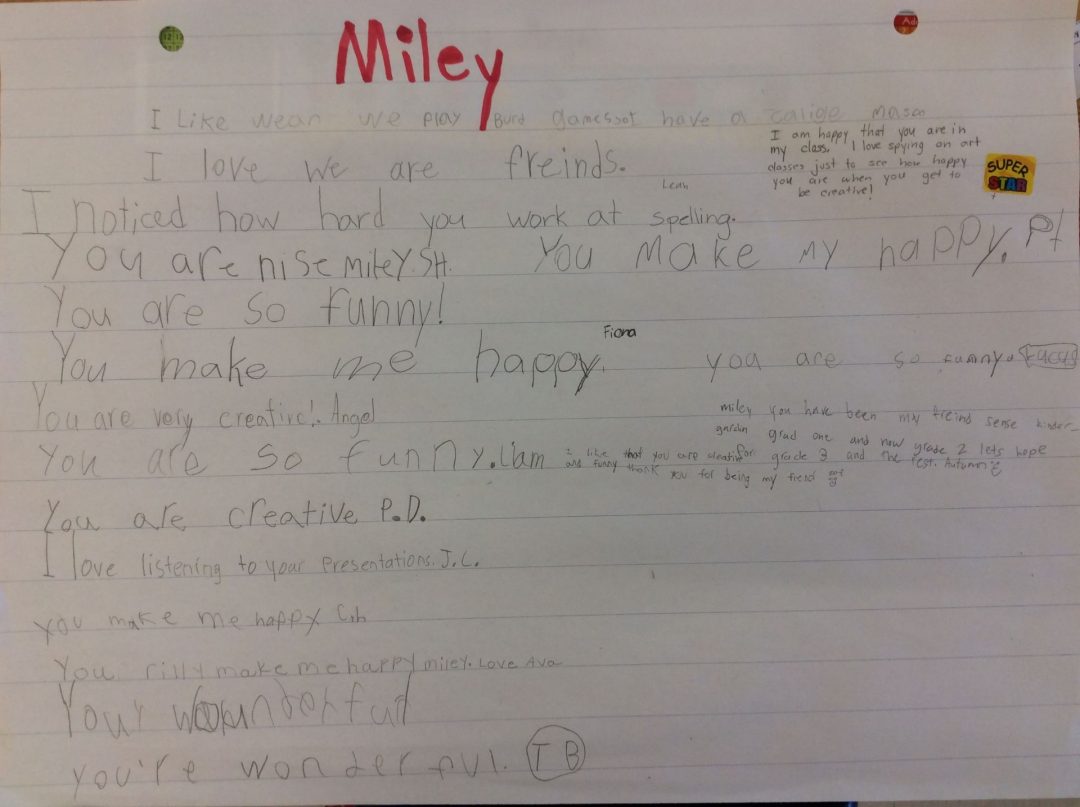 Miley
I Like wean we play Burd games I have a
I love we are freinds.
I am happy that you are in
my class. I love spying on art
classes just to see how happy
you are when you get to
be creative!
SUPER
STAR
Leah
I noticed how hard you work at spelling.
You are nise miley. SH.
You make my happy. Pt
You are so funny!
Fiona
You make me happy.
you are so funny.
You are very creative! Angel
miley you have been my freind sense kinder-
gardin grad one and now grade 2 lets hope
for grade 3 and the rest. Autumn
You are so funny. Liam
I like that you are creative
and funny thank you for being my freind
You are creative P.D.
I love listening to your Presentations. J.C.
you make me happy
You rilly make me happy miley. Love Ava
Your wounderful
you're wonderful. TB